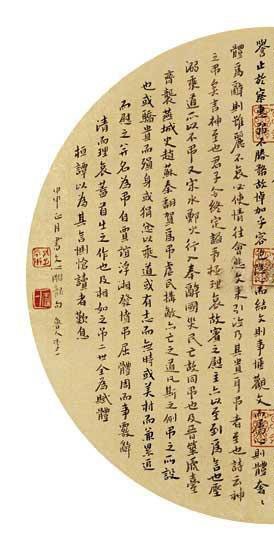 譽止於察惠弱不勝務故悼加乎容色隱心而結文則事愜觀文而屬心則體奢奢
體為辭則雖麗不哀必使情往會悲文來引泣乃其貴耳吊者至也詩云神
之吊矣言神至也君子令終定謚事極理哀故賓之慰主以至到為言也壓
溺乖道所以不吊又宋水鄭火行人奉辭國災民亡故同吊也及晉築虒臺
齊襲燕城史趙蘇秦翻賀為吊虐民搆敵亦亡之道凡斯之例吊之所設
也或驕貴而殞身或狷忿以乖道或有志而無時或美材而兼累追
而慰之並名為吊自賈誼浮湘發憤吊屈體周而事覈辭
清而理哀蓋首出之作也及相如之吊二世全為賦體
桓譚以為其言惻愴讀者歎息
甲申正月書文心雕龍句